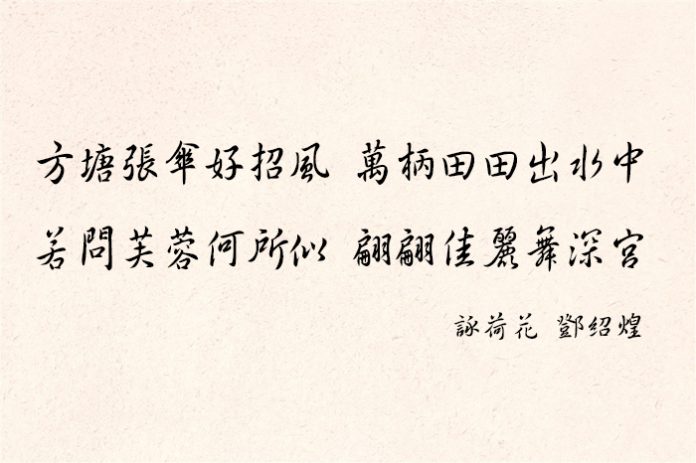 方塘張傘好招風 萬柄田田出水中
若問芙蓉何所似 翩翩佳麗舞深宮
詠荷花 鄧紹煌